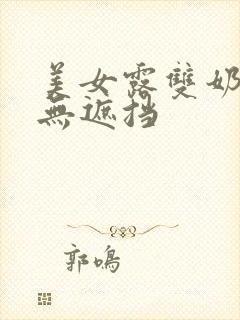 美女露雙奶
無遮挡
郭鳴